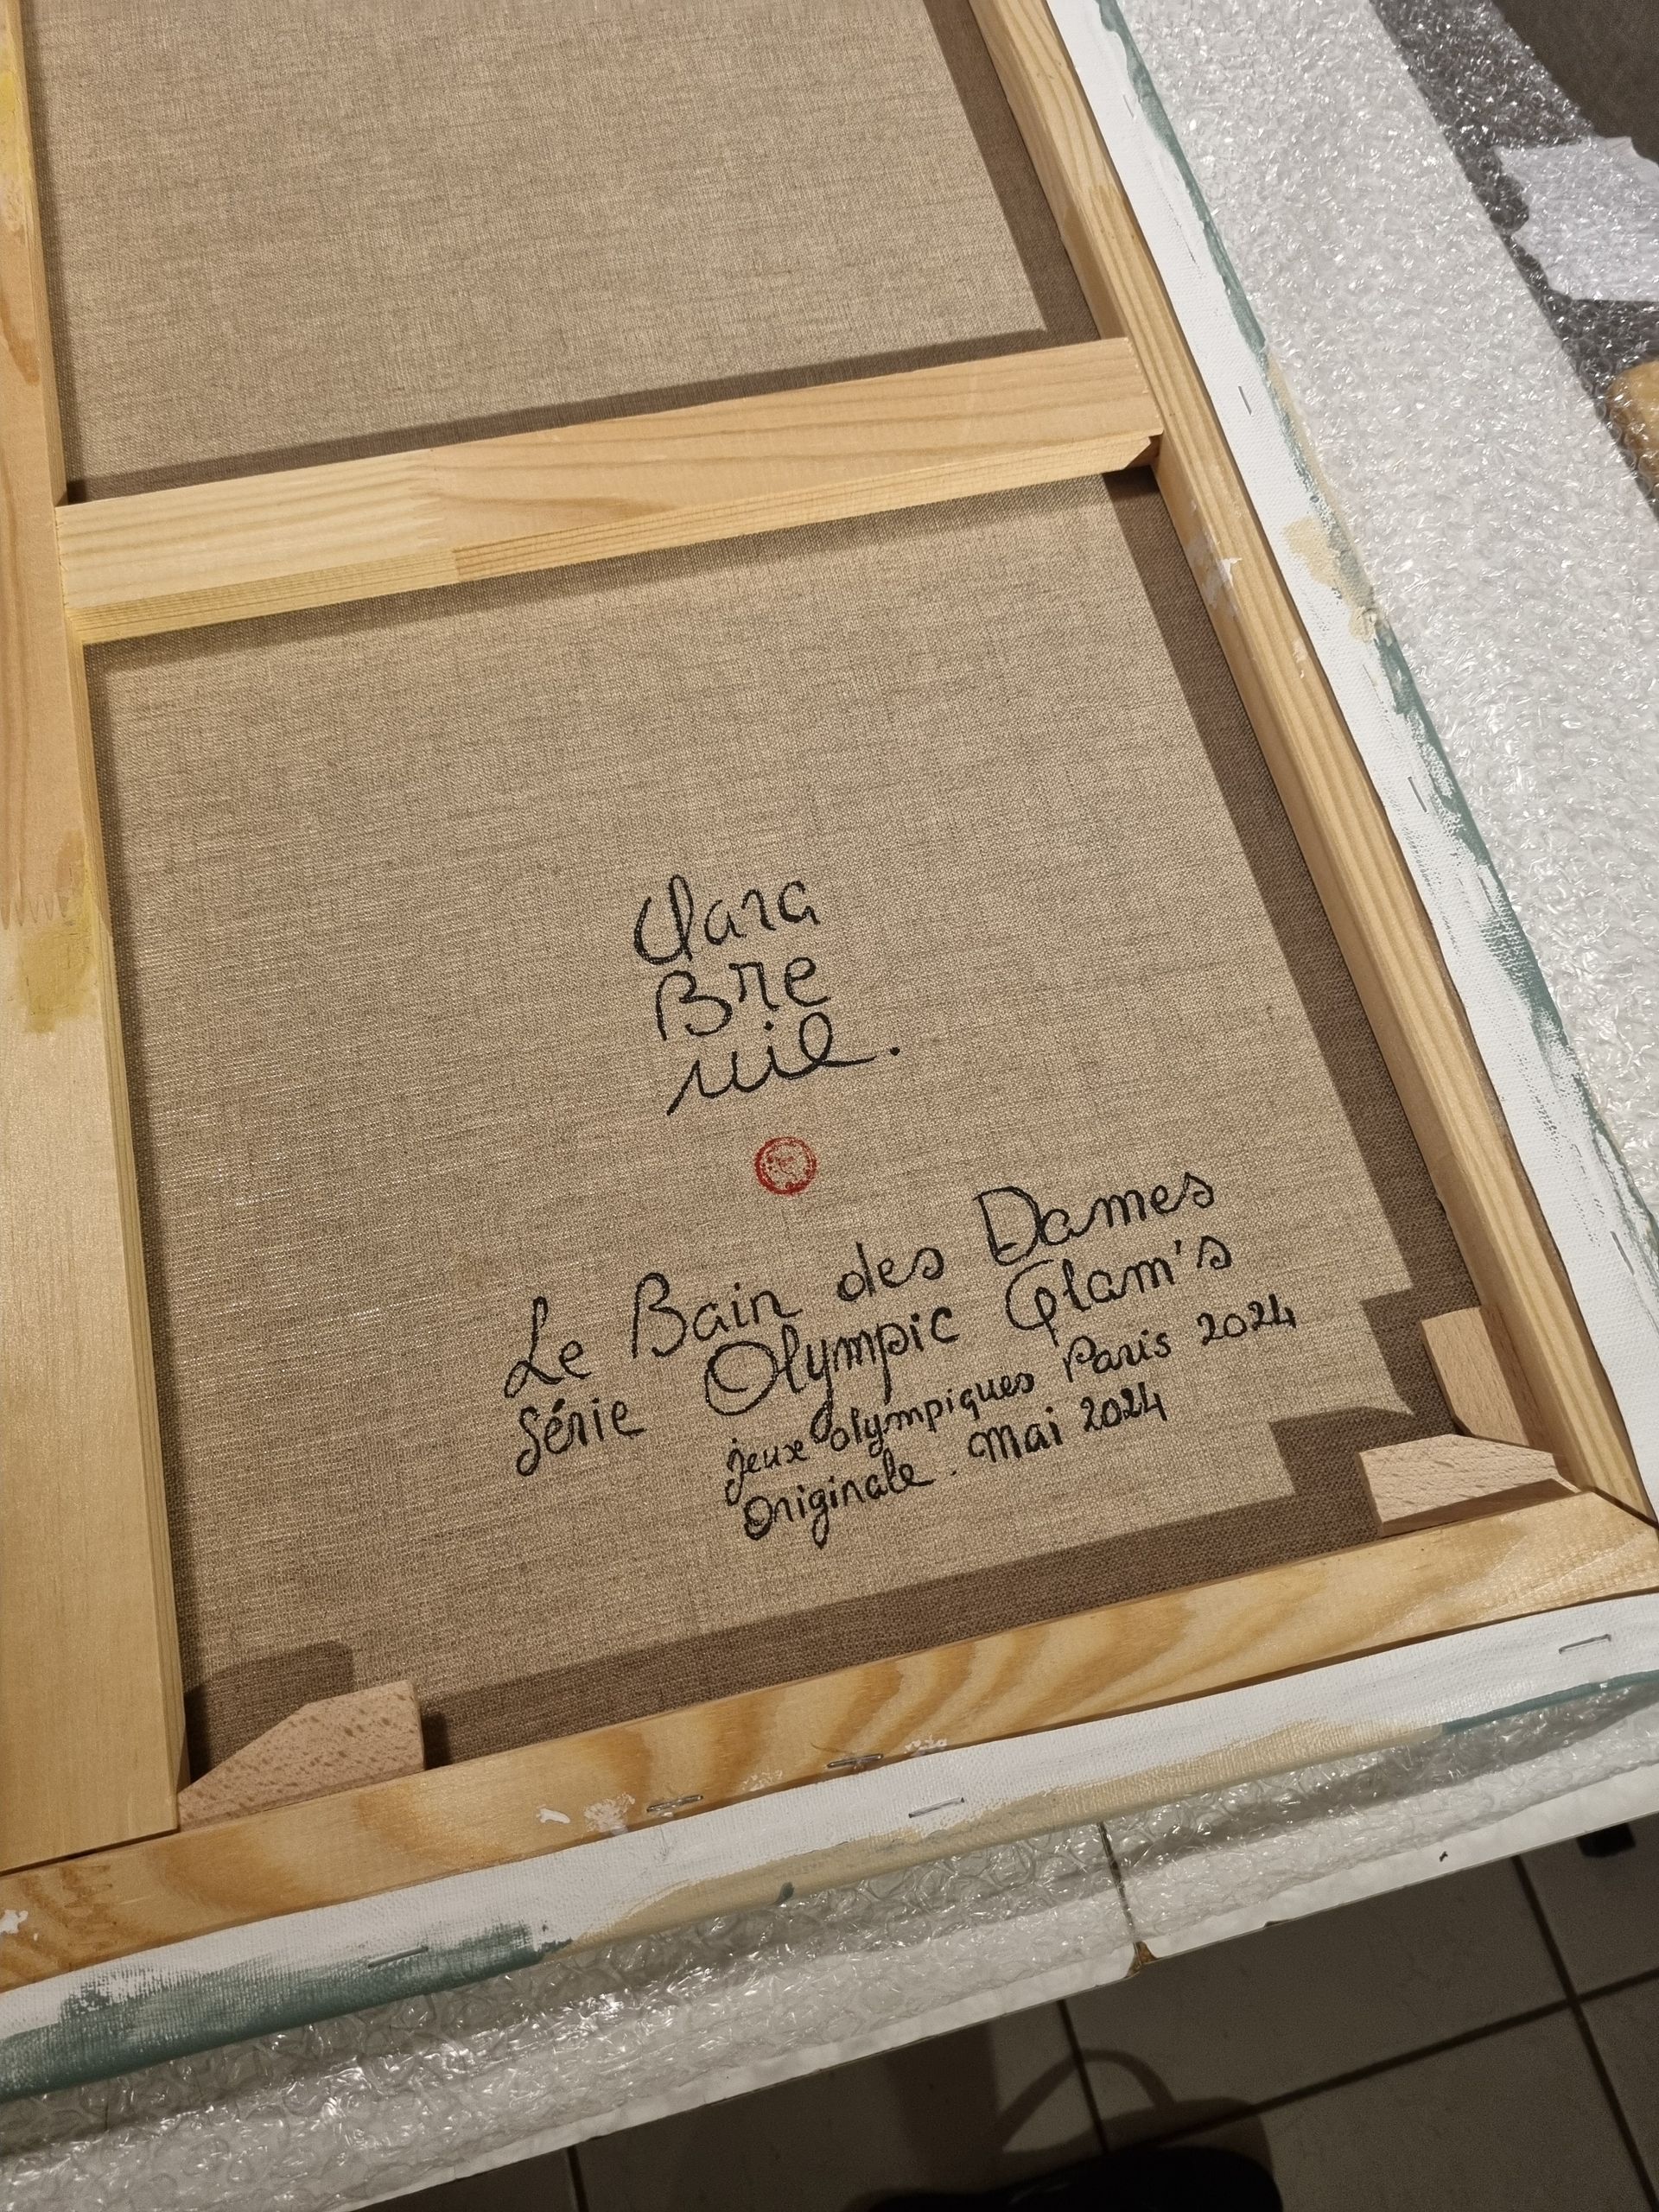 Clara
Bre
uil.
Le Bain des Dames
Série Olympic Glam's
jeux olympiques Paris 2024
Originale. Mai 2024